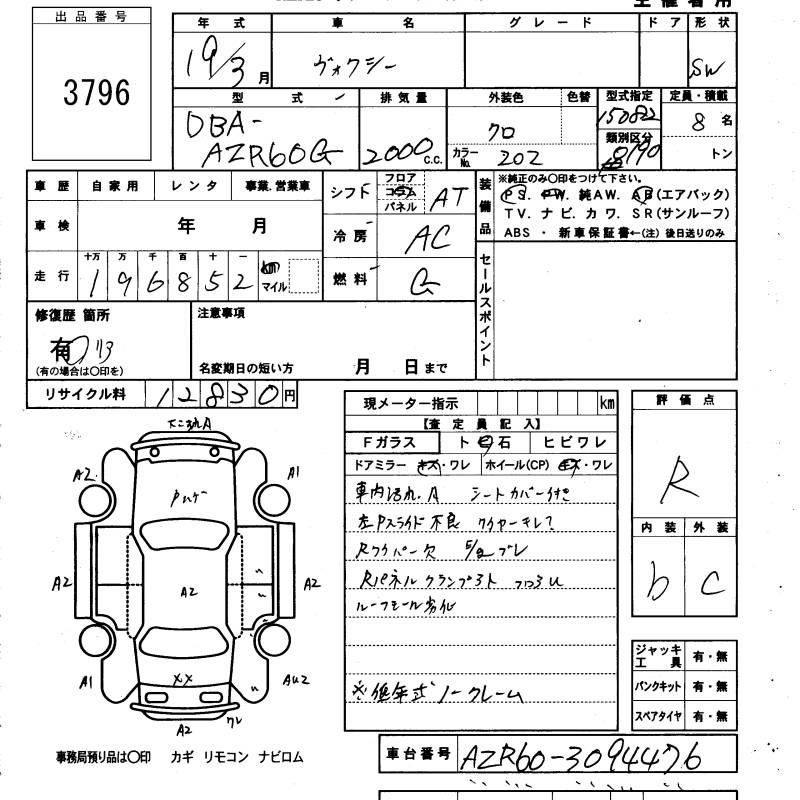 出品番号
3796
年式 車名 グレード ドア 形状
19/3月 ヴォクシー SW
型式 排気量 外装色 色替 型式指定 定員・積載
DBA-
AZR60G 2000 c.c. クロ 15082 8名
カラーNo. 202 類別区分 トン
車歴 自家用 レンタ 事業.営業車
車検 年 月
走行 十万 万 千 百 十 一
1 9 6 8 5 2 km マイル
シフト フロア コラム パネル AT
冷房 AC
燃料 G
装備品 ※純正のみ〇印をつけて下さい。
PS. PW. 純AW. AB(エアバック)
TV. ナビ. カワ. SR(サンルーフ)
ABS ・ 新車保証書←(注) 後日送りのみ
セールスポイント
修復歴 箇所
有
(有の場合は〇印を)
注意事項
名変期日の短い方 月 日まで
リサイクル料 12830円
現メーター指示 km
【査定員記入】
Fガラス ト ビ 石 ヒビワレ
ドアミラー キズ・ワレ ホイール(CP) キズ・ワレ
車内汚れ.A シートカバー付き
左Pスライド不良 ワイヤーキレ?
Rワイパー欠 ブレ
Rパネルクランプ
ルーフモール劣化
※低年式ノークレーム
評価点
R
内装 外装
b C
ジャッキ工具 有・無
パンクキット 有・無
スペアタイヤ 有・無
A2 A1
A2 A2 A2
A1 XX AU2
A2 ワレ
事務局預り品は〇印 カギ リモコン ナビロム
車台番号 AZR60-3094476